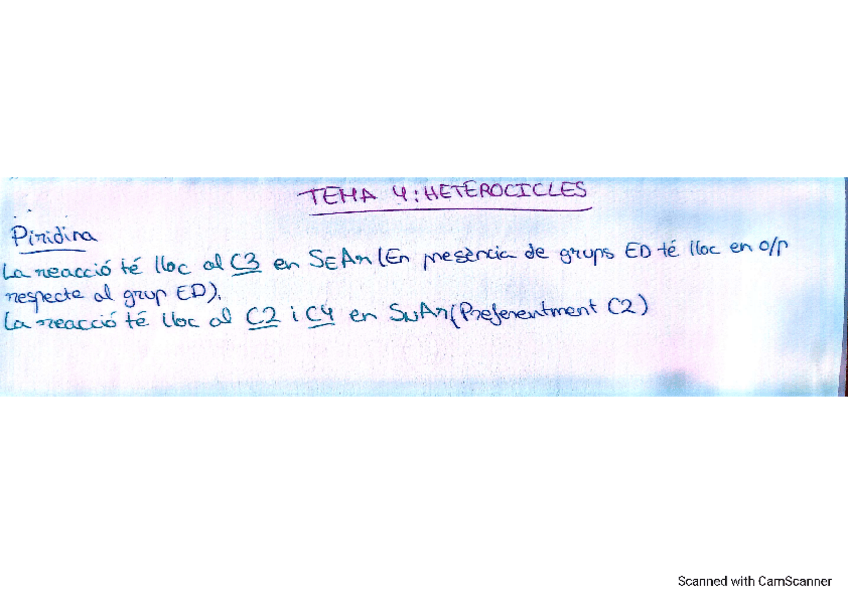 TEMA 4: HETEROCICLES
Piridina
La reacció té lloc al C3 en SEAr (En presència de grups ED té lloc en o/p
respecte al grup ED).
La reacció té lloc al C2 i C4 en SNAr (Preferentment C2)
Scanned with CamScanner